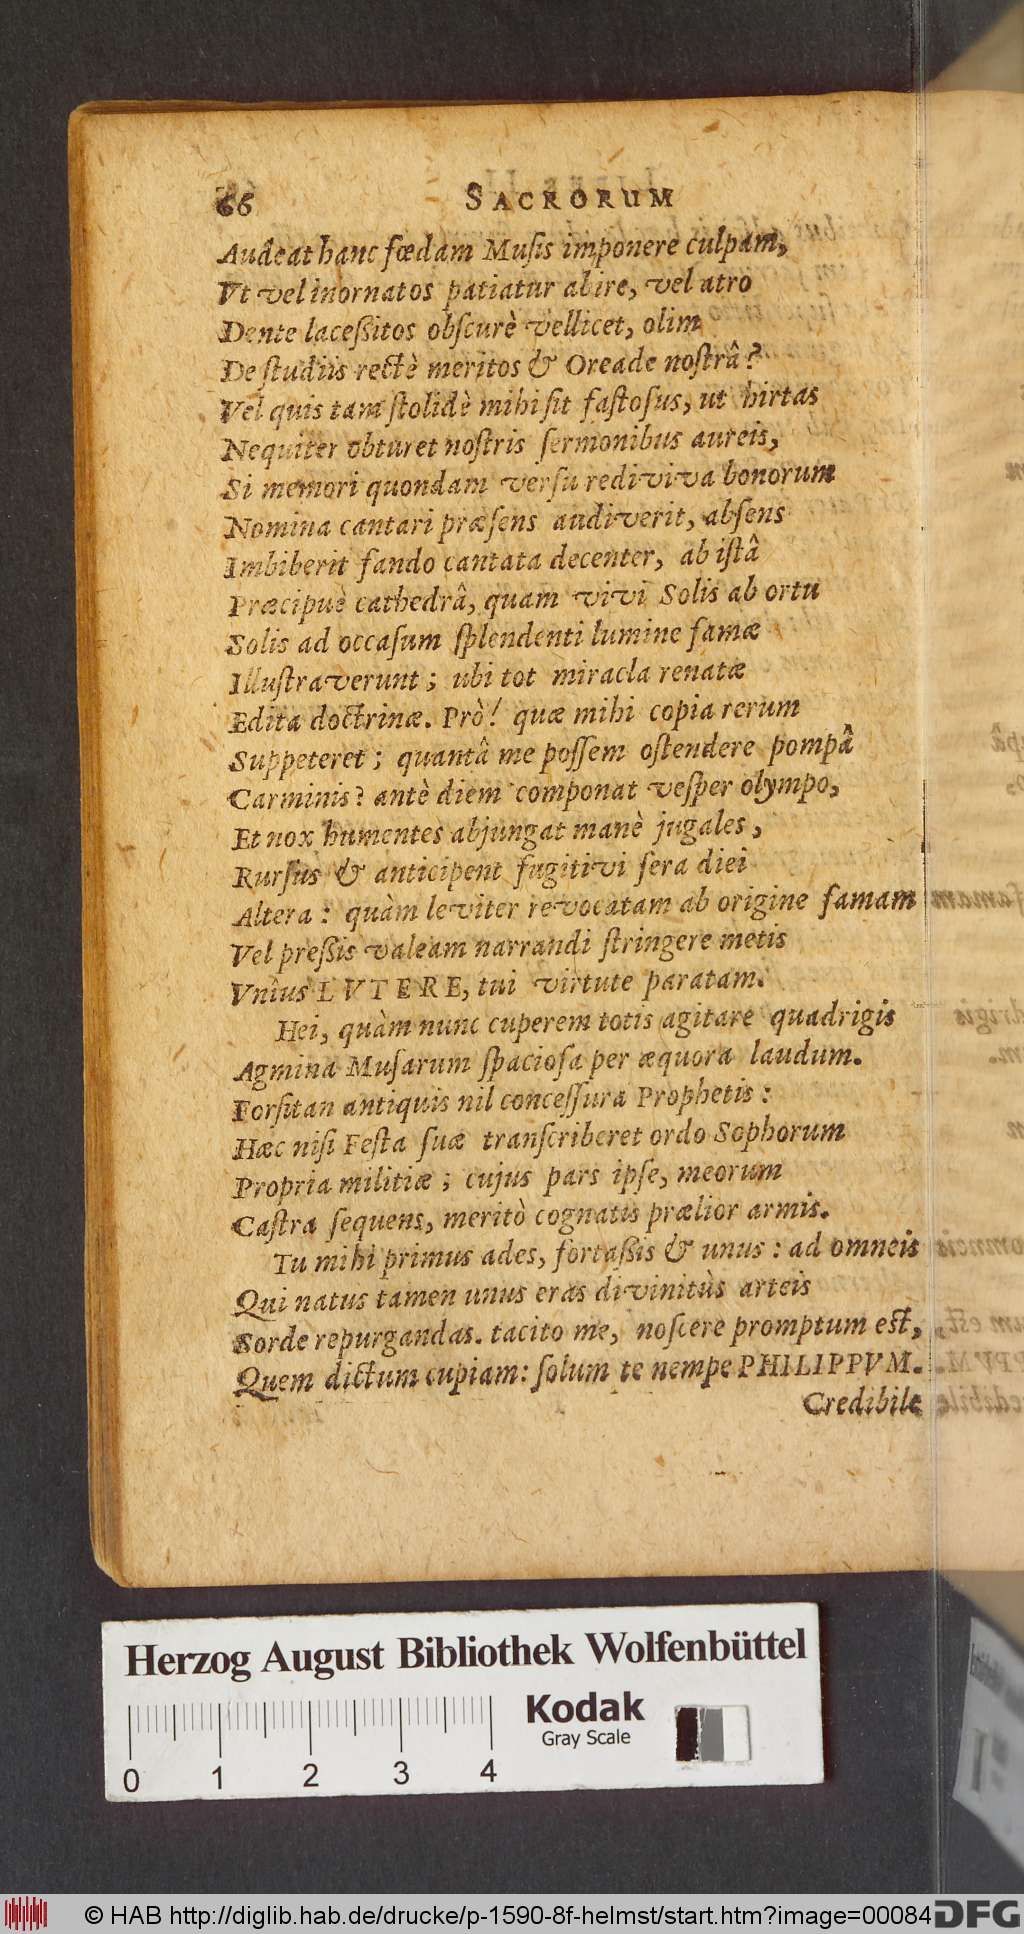 66 SACRORUM
Audeat hanc fœdam Muſis imponere culpam,
Vt vel inornatos patiatur abire, vel atro
Dente laceſſitos obſcurè vellicet, olim
De ſtudiis rectè meritos & Oreade noſtrâ?
Vel quis tam ſtolidè mihi ſit faſtoſus, ut hirtas
Nequiter obturet noſtris ſermonibus aureis,
Si memori quondam verſu rediviva bonorum
Nomina cantari præſens audiverit, abſens
Imbiberit fando cantata decenter, ab iſtâ
Præcipuè cathedrâ, quam vivi Solis ab ortu
Solis ad occaſum ſplendenti lumine famæ
Illuſtraverunt; ubi tot miracla renatæ
Edita doctrinæ. Prò! quæ mihi copia rerum
Suppeteret; quantâ me poſſem oſtendere pompâ
Carminis? antè diem componat veſper olympo,
Et nox humentes abjungat manè jugales,
Rurſus & anticipent fugitivi ſera diei
Altera: quàm leviter revocatam ab origine famam
Vel preſſis valeam narrandi ſtringere metis
Vnîus LVTERE, tui virtute paratam.
Hei, quàm nunc cuperem totis agitare quadrigis
Agmina Muſarum ſpacioſa per æquora laudum.
Forſitan antiquis nil conceſſura Prophetis:
Hæc niſi Feſta ſuæ tranſcriberet ordo Sophorum
Propria militiæ; cujus pars ipſe, meorum
Caſtra ſequens, meritò cognatis prælior armis.
Tu mihi primus ades, fortaſſis & unus: ad omneis
Qui natus tamen unus eras divinitùs arteis
Sorde repurgandas. tacito me, noſcere promptum eſt,
Quem dictum cupiam: ſolum te nempe PHILIPPVM.
Credibile
Herzog August Bibliothek Wolfenbüttel
Kodak
Gray Scale
0 1 2 3 4
© HAB http://diglib.hab.de/drucke/p-1590-8f-helmst/start.htm?image=00084
DFG